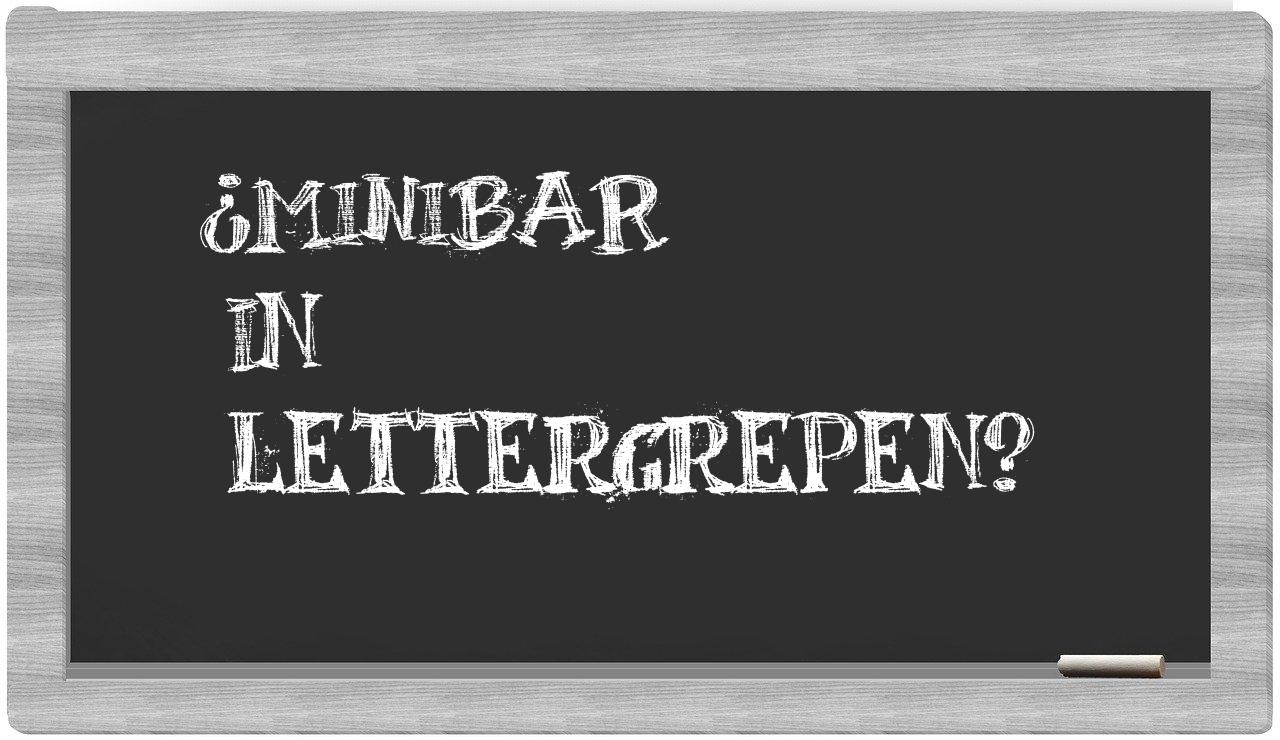 ¿MINIBAR
IN
LETTERGREPEN?